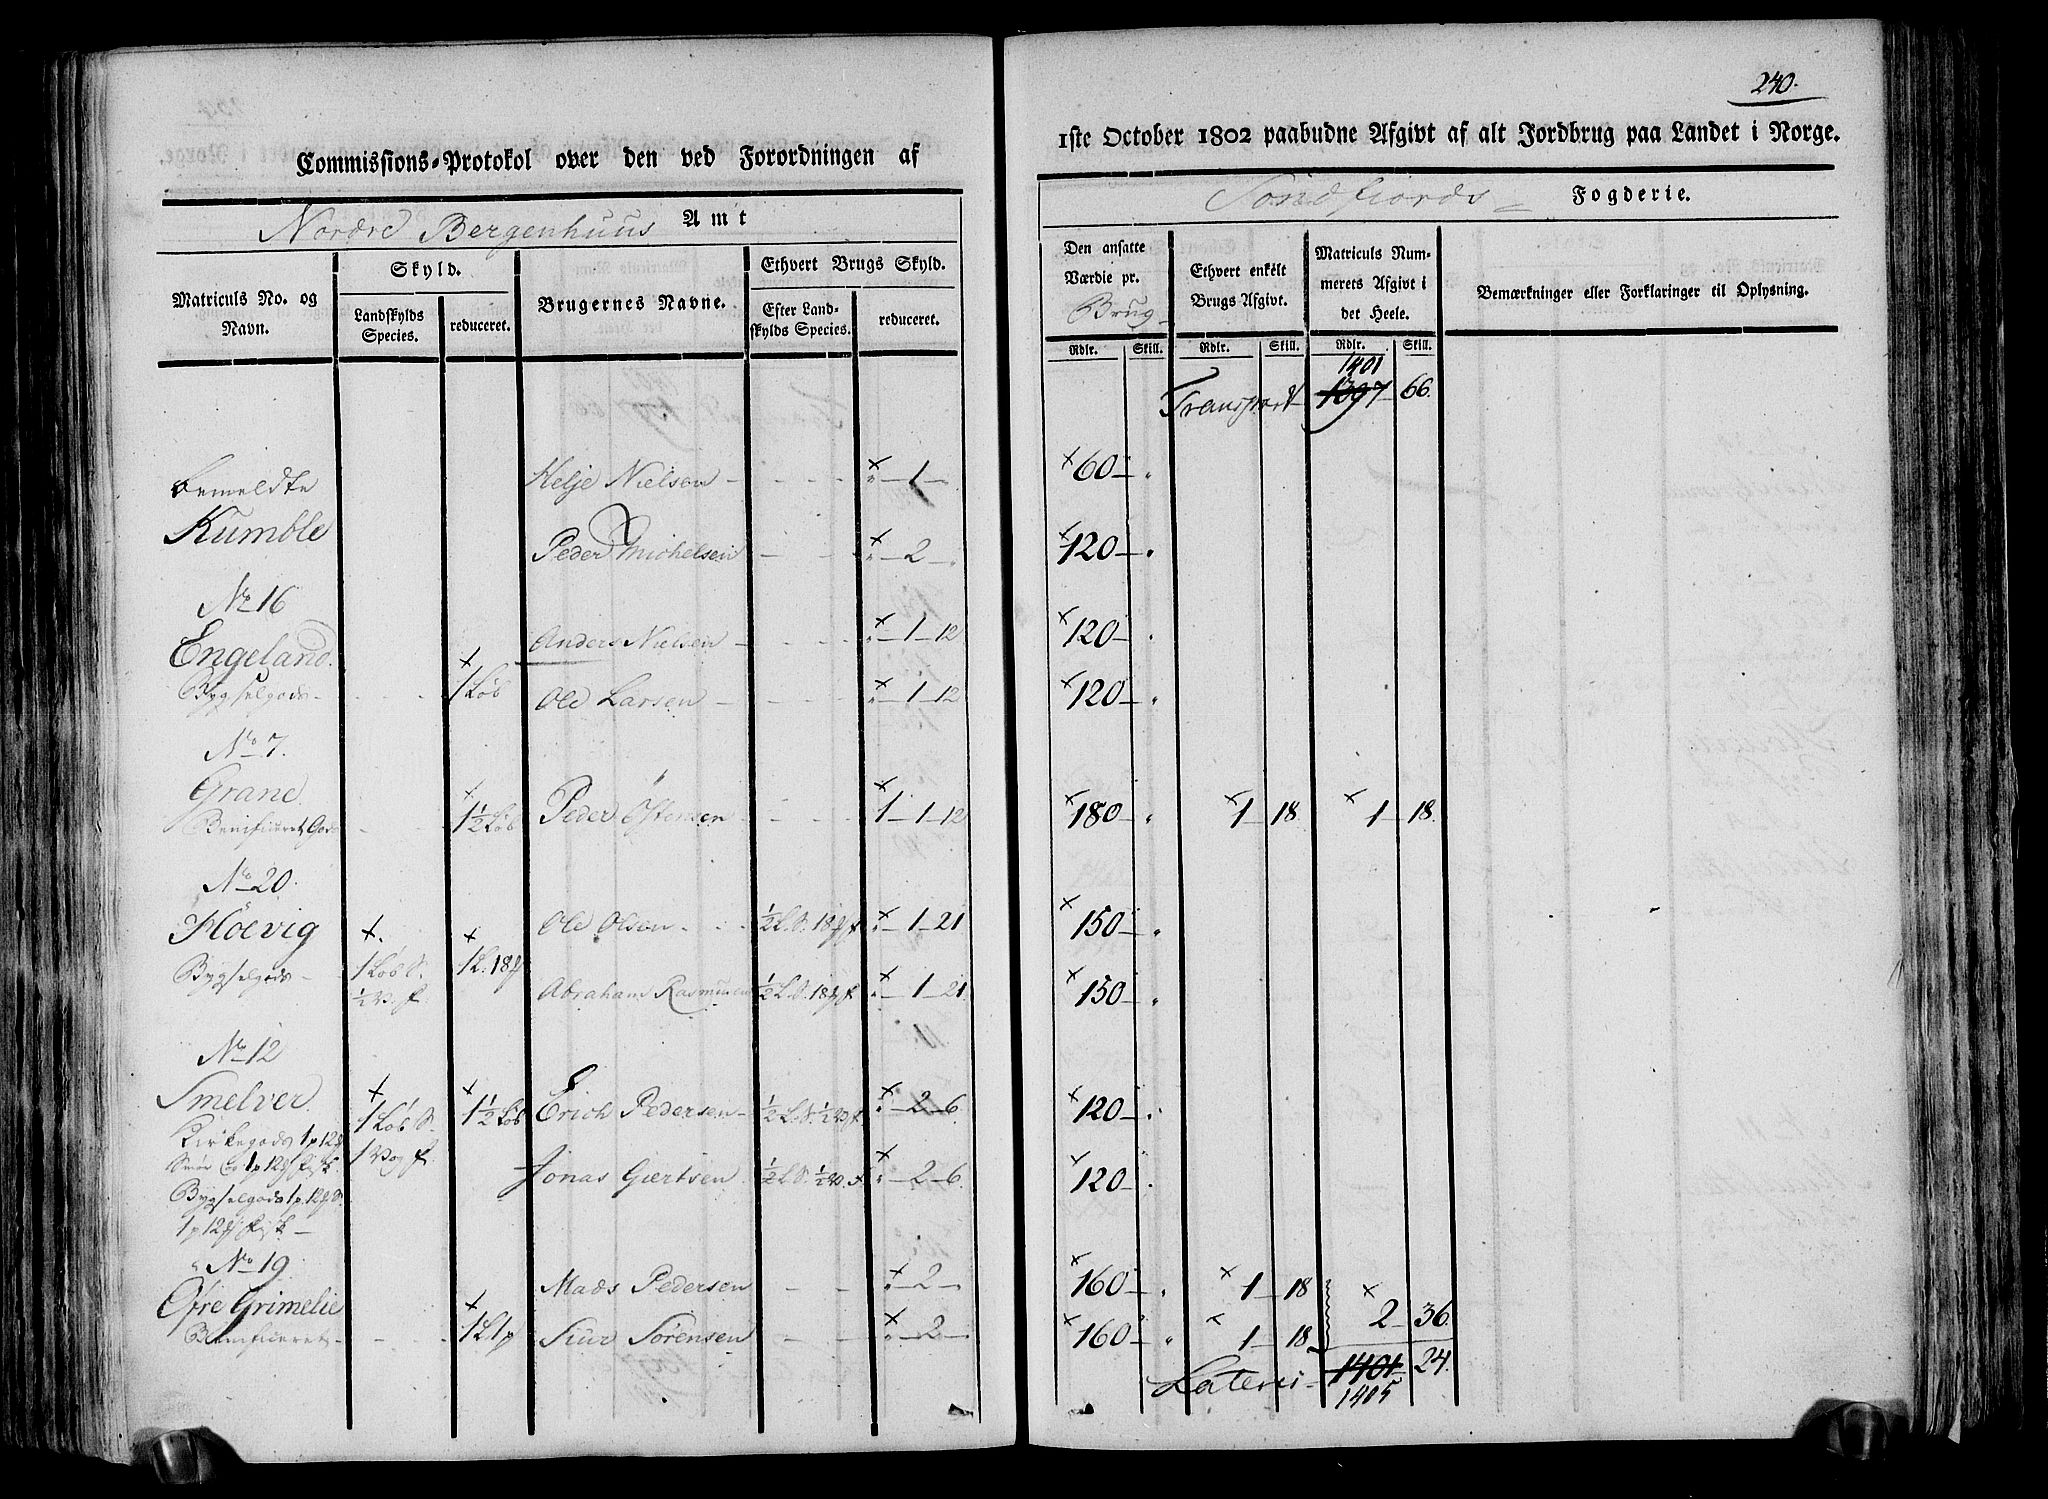 240.
Commissions-Protokol over den ved Forordningen af
1ste October 1802 paabudne Afgivt af alt Jordbrug paa Landet i Norge.
Nordre Bergenhuus Amt
Søndfiords Fogderie.
Matriculs No. og Navn.
Skyld.
Landskylds Species.
reduceret.
Brugernes Navne.
Ethvert Brugs Skyld.
Efter Landskylds Species.
reduceret.
Den ansatte Værdie pr. Brug
Ethvert enkelt Brugs Afgivt.
Matriculs Nummerets Afgivt i det Heele.
Bemærkninger eller Forklaringer til Oplysning.
Rdlr. Skill. Rdlr. Skill. Rdlr. Skill.
1401
Transport 1397 66.
bemeldte Helje Nielsen - - - " - 1 - 60 - "
Kumble Peder Michelsen - - - " - 2 - 120 - "
No 16
Engeland Anders Nielsen - - - " - 1 - 12 120 - "
Bygselgods - - - 1 Løb Ole Larsen - - - " - 1 - 12 120 - "
No 7.
Grane
Benificeret Gods - - 1½ Løb Peder Östensen - - - 1 - 1 - 12 180 " 1 - 18 1 - 18.
No 20.
Høevig Ole Olsen - - ½ L. S. 18 f " - 1 - 21 150 - "
Bygselgods - 1 Løb S. 1 L. 18
½ V. f. Abraham Rasmusen ½ L. S. 18 f. " - 1 - 21 150 - "
No 12
Smelver 1 Løb S. 1½ Løb Erich Pedersen - ½ L. S. ½ V. f " - 2 - 6 120 - "
Kirkegods 1 p 12
Smør og 1 p 12 Fisk 1 Vog f. Jonas Giertsen ½ L. S. ½ V. f " - 2 - 6. 120 - "
Bygselgods 1 p. 12 S.
1 p 12 Fisk -
No 19
Øfre Grimelie Mads Pedersen - - " - 2 - 160 - " 1 - 18
2 - 36.
Benificeret - - - 1 L 1 p Siur Sørensen - - " - 2 - 160 - " 1 - 18
Lateris - 1401 24.
1405